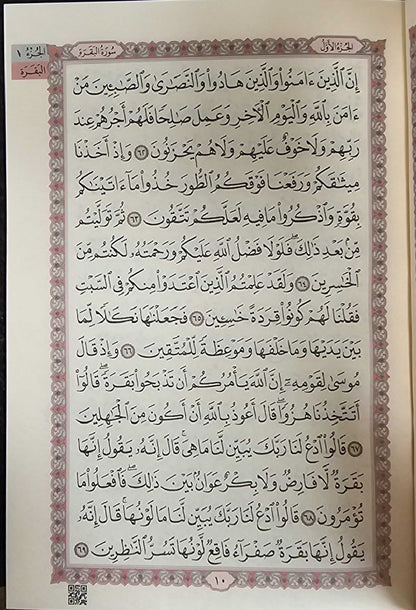 الجزء ١
البقرة
سورة البقرة
الجزء الأول
إِنَّ ٱلَّذِينَ ءَامَنُوا۟ وَٱلَّذِينَ هَادُوا۟ وَٱلنَّصَـٰرَىٰ وَٱلصَّـٰبِـِٔينَ مَنْ
ءَامَنَ بِٱللَّهِ وَٱلْيَوْمِ ٱلْـَٔاخِرِ وَعَمِلَ صَـٰلِحًا فَلَهُمْ أَجْرُهُمْ عِندَ
رَبِّهِمْ وَلَا خَوْفٌ عَلَيْهِمْ وَلَا هُمْ يَحْزَنُونَ ٦٢ وَإِذْ أَخَذْنَا
مِيثَـٰقَكُمْ وَرَفَعْنَا فَوْقَكُمُ ٱلطُّورَ خُذُوا۟ مَآ ءَاتَيْنَـٰكُم
بِقُوَّةٍ وَٱذْكُرُوا۟ مَا فِيهِ لَعَلَّكُمْ تَتَّقُونَ ٦٣ ثُمَّ تَوَلَّيْتُم
مِّنۢ بَعْدِ ذَٰلِكَ ۖ فَلَوْلَا فَضْلُ ٱللَّهِ عَلَيْكُمْ وَرَحْمَتُهُۥ لَكُنتُم مِّنَ
ٱلْخَـٰسِرِينَ ٦٤ وَلَقَدْ عَلِمْتُمُ ٱلَّذِينَ ٱعْتَدَوْا۟ مِنكُمْ فِى ٱلسَّبْتِ
فَقُلْنَا لَهُمْ كُونُوا۟ قِرَدَةً خَـٰسِـِٔينَ ٦٥ فَجَعَلْنَـٰهَا نَكَـٰلًا لِّمَا
بَيْنَ يَدَيْهَا وَمَا خَلْفَهَا وَمَوْعِظَةً لِّلْمُتَّقِينَ ٦٦ وَإِذْ قَالَ
مُوسَىٰ لِقَوْمِهِۦٓ إِنَّ ٱللَّهَ يَأْمُرُكُمْ أَن تَذْبَحُوا۟ بَقَرَةً ۖ قَالُوٓا۟
أَتَتَّخِذُنَا هُزُوًا ۖ قَالَ أَعُوذُ بِٱللَّهِ أَنْ أَكُونَ مِنَ ٱلْجَـٰهِلِينَ
٦٧ قَالُوا۟ ٱدْعُ لَنَا رَبَّكَ يُبَيِّن لَّنَا مَا هِىَ ۚ قَالَ إِنَّهُۥ يَقُولُ إِنَّهَا
بَقَرَةٌ لَّا فَارِضٌ وَلَا بِكْرٌ عَوَانٌۢ بَيْنَ ذَٰلِكَ ۖ فَٱفْعَلُوا۟ مَا
تُؤْمَرُونَ ٦٨ قَالُوا۟ ٱدْعُ لَنَا رَبَّكَ يُبَيِّن لَّنَا مَا لَوْنُهَا ۚ قَالَ إِنَّهُۥ
يَقُولُ إِنَّهَا بَقَرَةٌ صَفْرَآءُ فَاقِعٌ لَّوْنُهَا تَسُرُّ ٱلنَّـٰظِرِينَ ٦٩
١٠